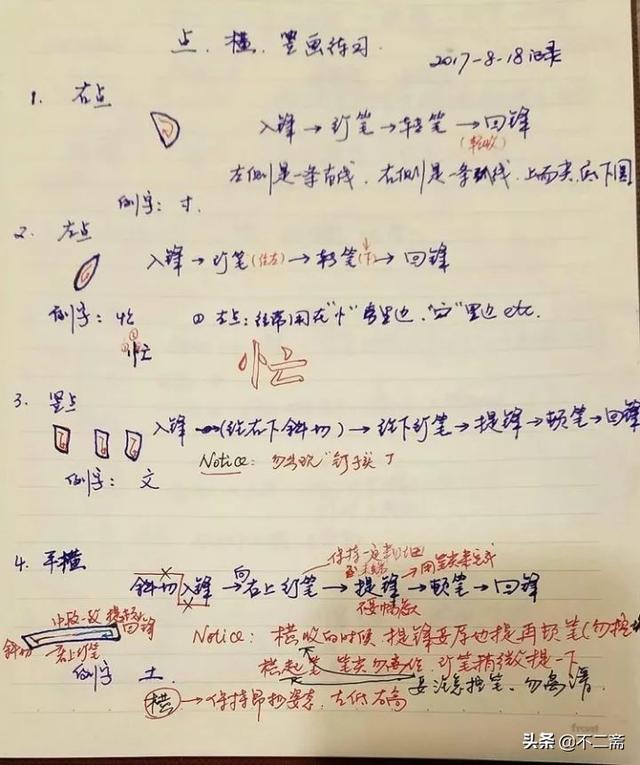 点、横、竖画练习.
2017-8-18记录
1. 右点
入锋→行笔→转笔→回锋
(轻收)
左侧是一条直线，右侧是一条弧线，上面尖，底下圆
例字：寸.
2. 左点
入锋→行笔(往左)→转笔(下)→回锋
例字：忙 ① 左点：经常用在"忄"旁里边，"宀"里边 etc.
忙
忙
3. 竖点
入锋→(往右下斜切)→往下行笔→提锋→顿笔→回锋
Notice: 勿出现"钉子头"丁
例字：文
4. 平横
保持一定 用笔尖来完成
斜切入锋→向右上行笔→提锋→顿笔→回锋
不要
中段 提锋 回锋
斜切 右上行笔
Notice: 横收的时候，提锋要原地提再顿笔(勿拖
横起笔，笔尖勿离纸，行笔稍微提一下
例字 土. 要注意控笔，勿
横→保持昂扬姿态，左低右高
头条 @不二斋